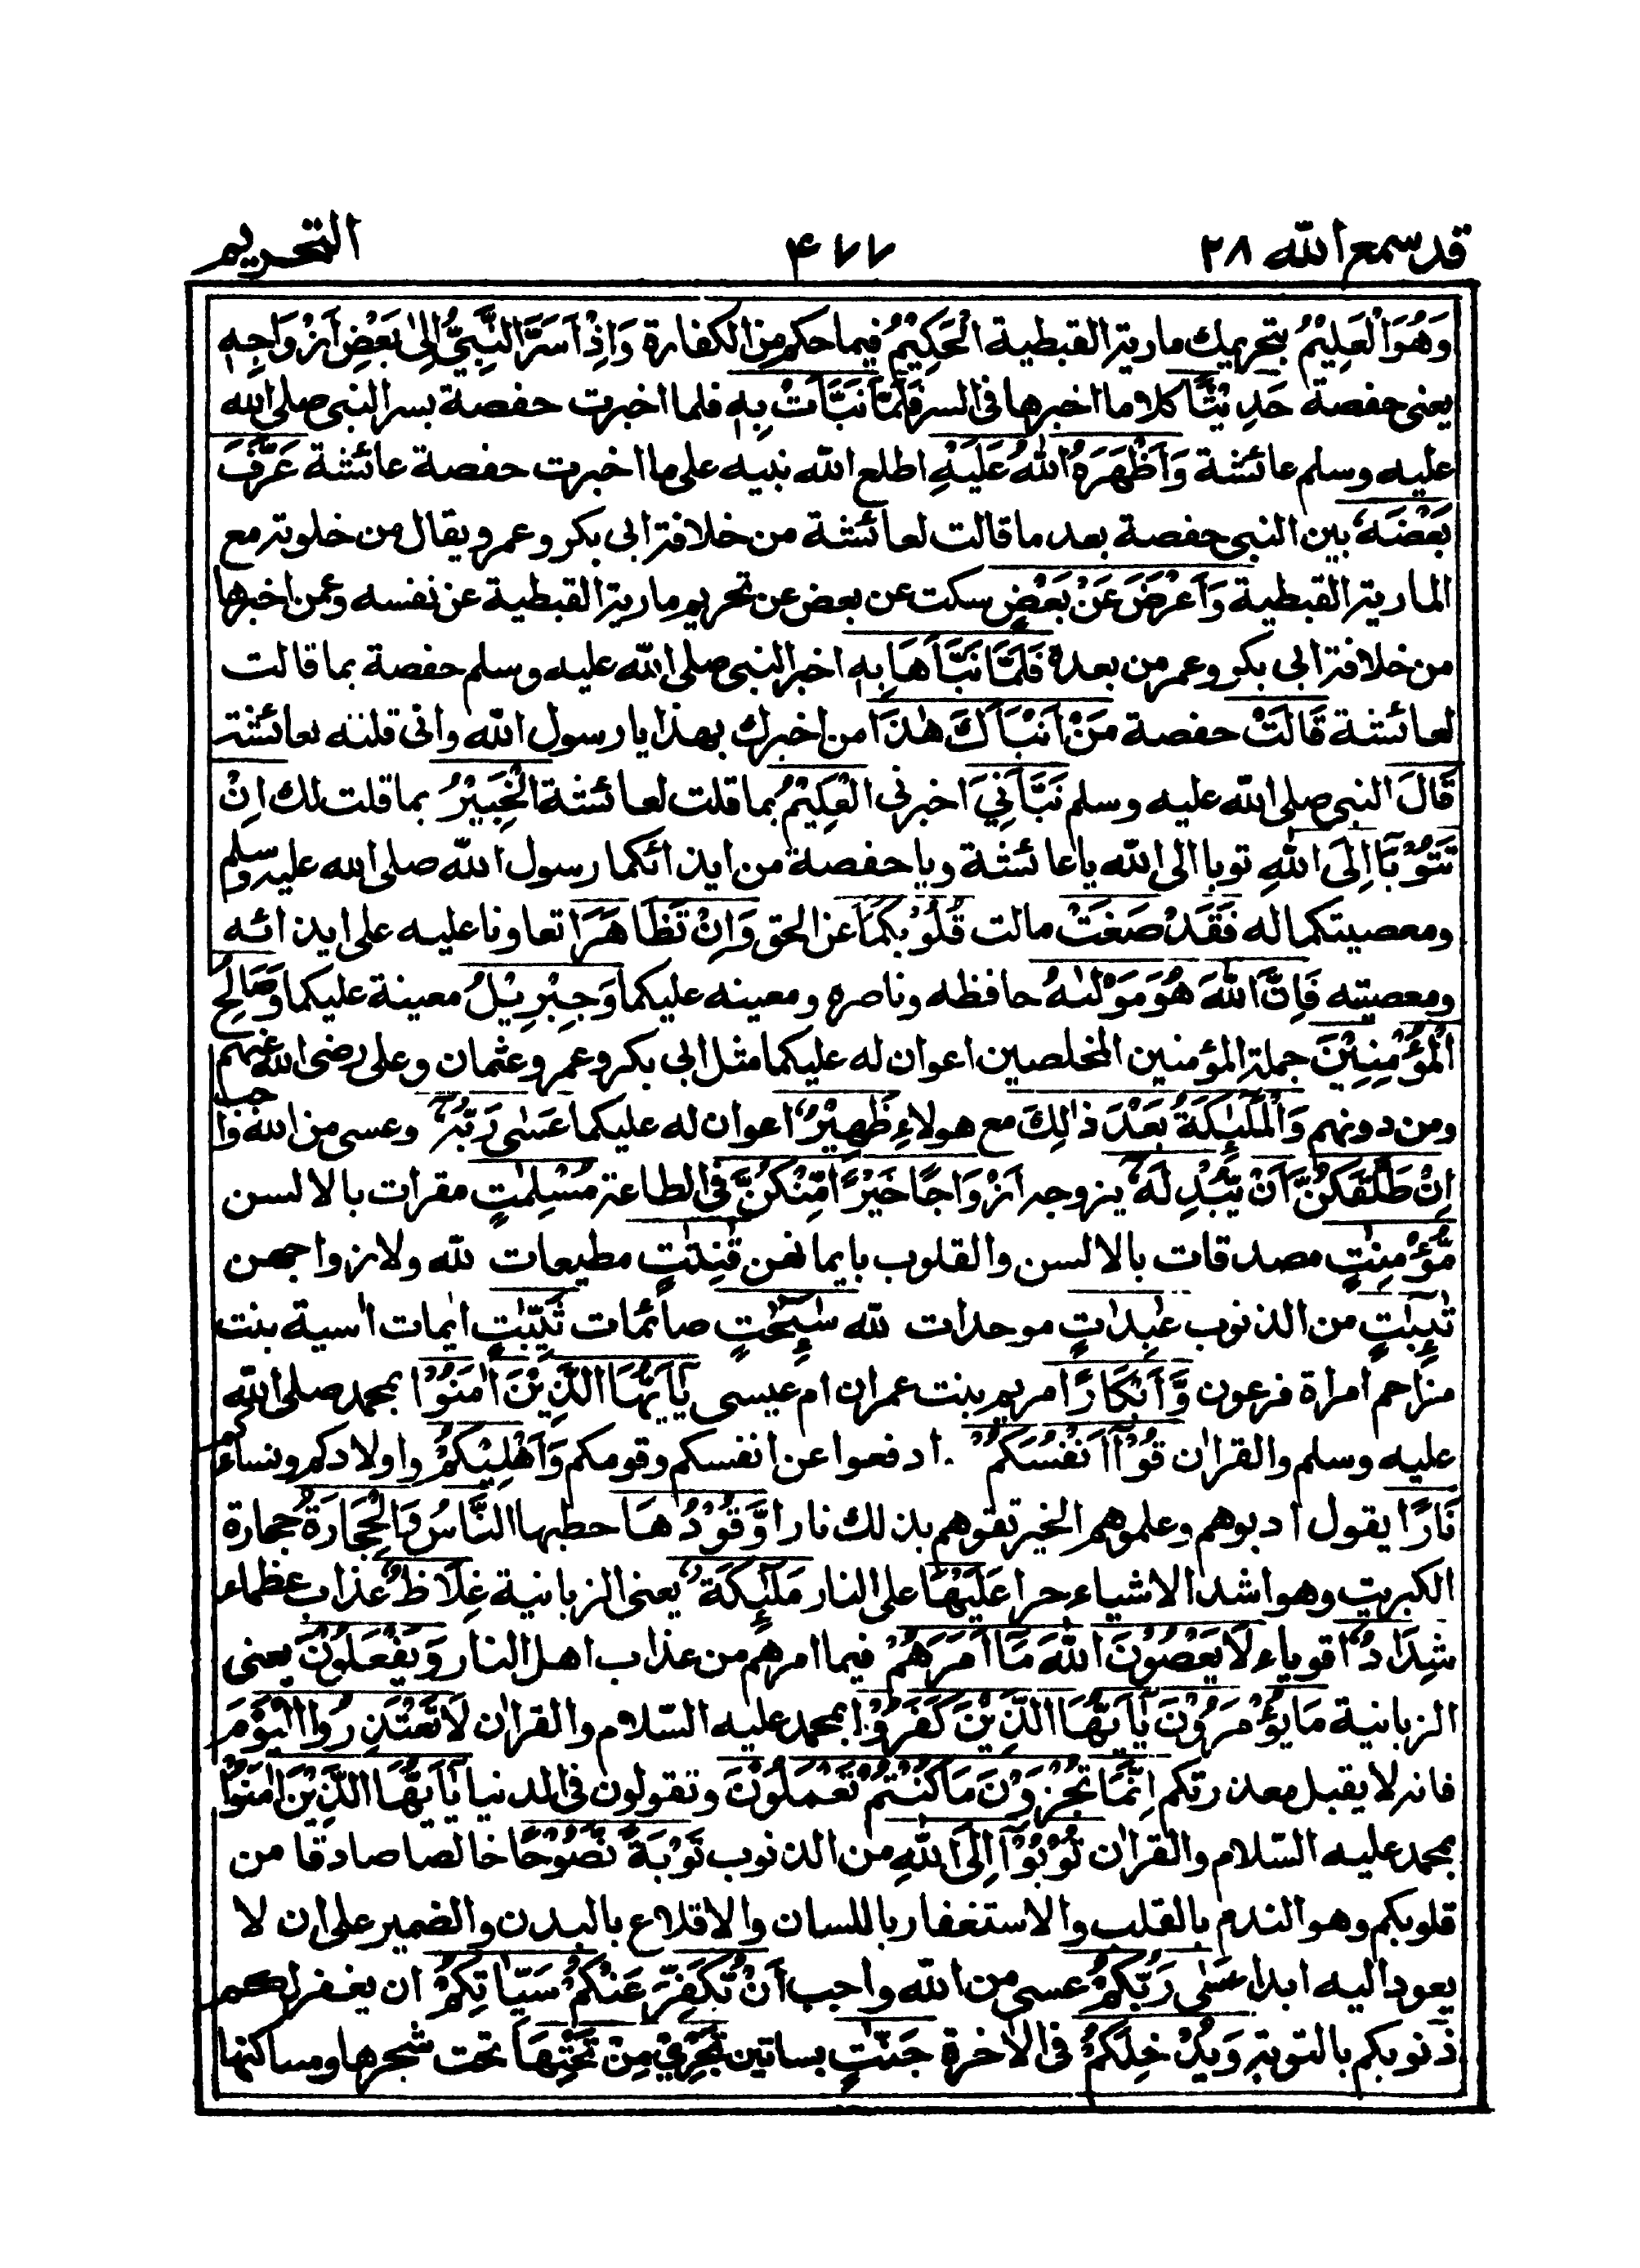 قد سمع الله ٢٨
۴۷۷
التحريم
وَهُوَ الْعَلِيْمُ بتحريمك مارية القبطية الْحَكِيْمُ فيما حكم من الكفارة وَاِذْ اَسَرَّ النَّبِيُّ اِلٰى بَعْضِ اَزْوَاجِهٖ
يعنى حفصة حَدِيْثًا كلاما اخبرها فى السر فَلَمَّا نَبَّاَتْ بِهٖ فلما اخبرت حفصة بسر النبى صلى الله
عليه وسلم عائشة وَاَظْهَرَهُ اللّٰهُ عَلَيْهِ اطلع الله نبيه على ما اخبرت حفصة عائشة عَرَّفَ
بَعْضَهٗ بين النبى حفصة بعد ما قالت لعائشة من خلافة ابى بكر وعمر ويقال من خلوته مع
المارية القبطية وَاَعْرَضَ عَنْ بَعْضٍ سكت عن بعض عن تحريم مارية القبطية عن نفسه وعمن اخبرها
من خلافة ابى بكر وعمر من بعده فَلَمَّا نَبَّاَهَا بِهٖ اخبر النبى صلى الله عليه وسلم حفصة بما قالت
لعائشة قَالَتْ حفصة مَنْ اَنْبَاَكَ هٰذَا من اخبرك بهذا يا رسول الله وانى قلته لعائشة
قَالَ النبى صلى الله عليه وسلم نَبَّاَنِيَ اخبرنى الْعَلِيْمُ بما قلت لعائشة الْخَبِيْرُ بما قلت لك اِنْ
تَتُوْبَآ اِلَى اللّٰهِ توبا الى الله يا عائشة ويا حفصة من ايذائكما رسول الله صلى الله عليه وسلم
ومعصيتكما له فَقَدْ صَغَتْ مالت قُلُوْبُكُمَا عن الحق وَاِنْ تَظَاهَرَا تعاونا عليه على ايذائه
ومعصيته فَاِنَّ اللّٰهَ هُوَ مَوْلٰىهُ حافظه وناصره ومعينه عليكما وَجِبْرِيْلُ معينة عليكما وَصَالِحُ
الْمُؤْمِنِيْنَ جملة المؤمنين المخلصين اعوان له عليكما مثل ابى بكر وعمر وعثمان وعلى رضى الله عنهم
ومن دونهم وَالْمَلٰٓئِكَةُ بَعْدَ ذٰلِكَ مع هولاء ظَهِيْرٌ اعوان له عليكما عَسٰى رَبُّهٗ وعسى من الله واجب
اِنْ طَلَّقَكُنَّ اَنْ يُّبْدِلَهٗ يزوجه اَزْوَاجًا خَيْرًا مِّنْكُنَّ فى الطاعة مُسْلِمٰتٍ مقرات بالالسن
مُّؤْمِنٰتٍ مصدقات بالالسن والقلوب بايمانهن قٰنِتٰتٍ مطيعات لله ولازواجهن
تٰٓئِبٰتٍ من الذنوب عٰبِدٰتٍ موحدات لله سٰٓئِحٰتٍ صائمات ثَيِّبٰتٍ ايمات اٰسية بنت
مزاحم امراة فرعون وَّاَبْكَارًا مريم بنت عمران ام عيسى يٰٓاَيُّهَا الَّذِيْنَ اٰمَنُوْا بمحمد صلى الله
عليه وسلم والقراٰن قُوْٓا اَنْفُسَكُمْ ادفعوا عن انفسكم وقومكم وَاَهْلِيْكُمْ واولادكم ونساءكم
نَارًا يقول ادبوهم وعلموهم الخير تقوهم بذلك نارا وَّقُوْدُهَا حطبها النَّاسُ وَالْحِجَارَةُ حجارة
الكبريت وهو اشد الاشياء حرا عَلَيْهَا على النار مَلٰٓئِكَةٌ يعنى الزبانية غِلَاظٌ عذاب عظماء
شِدَادٌ اقوياء لَا يَعْصُوْنَ اللّٰهَ مَآ اَمَرَهُمْ فيما امرهم من عذاب اهل النار وَيَفْعَلُوْنَ يعنى
الزبانية مَا يُؤْمَرُوْنَ يٰٓاَيُّهَا الَّذِيْنَ كَفَرُوْا بمحمد عليه السّلام والقراٰن لَا تَعْتَذِرُوا الْيَوْمَ
فانه لا يقبل معذرتكم اِنَّمَا تُجْزَوْنَ مَا كُنْتُمْ تَعْمَلُوْنَ وتقولون فى الدنيا يٰٓاَيُّهَا الَّذِيْنَ اٰمَنُوْا
بمحمد عليه السّلام والقراٰن تُوْبُوْٓا اِلَى اللّٰهِ من الذنوب تَوْبَةً نَّصُوْحًا خالصا صادقا من
قلوبكم وهو الندم بالقلب والاستغفار باللسان والاقلاع بالبدن والضمير على ان لا
يعود اليه ابدا عَسٰى رَبُّكُمْ عسى من الله واجب اَنْ يُّكَفِّرَ عَنْكُمْ سَيِّاٰتِكُمْ ان يغفر لكم
ذنوبكم بالتوبة وَيُدْخِلَكُمْ فى الاٰخرة جَنّٰتٍ بساتين تَجْرِيْ مِنْ تَحْتِهَا تحت شجرها ومساكنها